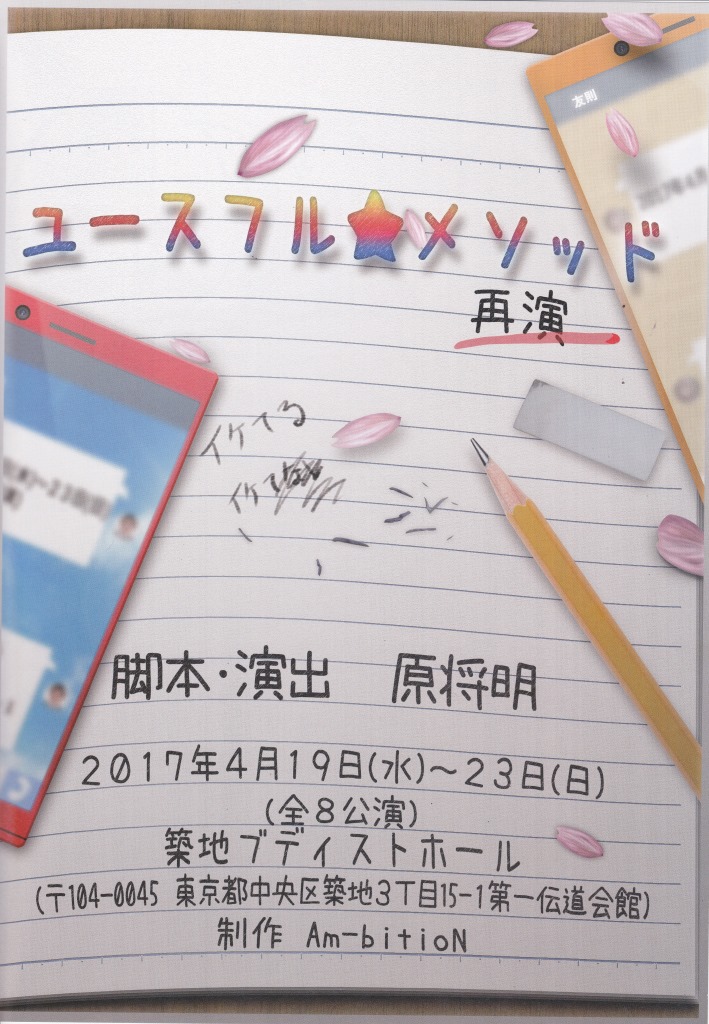 友則
ユースフル★メソッド
再演
イケてる
イケ
脚本・演出　原将明
2017年4月19日(水)～23日(日)
(全8公演)
築地ブディストホール
(〒104-0045 東京都中央区築地3丁目15-1第一伝道会館)
制作 Am-bitioN